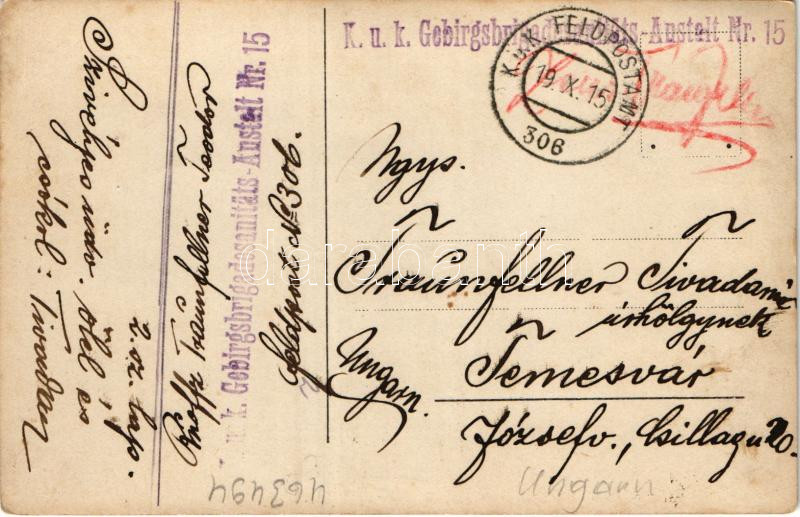 K. u. k. Gebirgsbrigadesanitäts-Anstalt Nr. 15
K.u.K. FELDPOSTAMT
19. X. 15
306
Ngys.
Traunfellner Tivadarné
úrhölgynek
Ungarn.
Temesvár
Józsefv., Csillag u 20.
Ungarn
2. sz. lap.
Szivélyes üdv. ölel és
csókol: Tivadar
Traunfellner Teodor
u. k. Gebirgsbrigadesanitäts-Anstalt Nr. 15
Feldpost No 306.
463494
darabanth